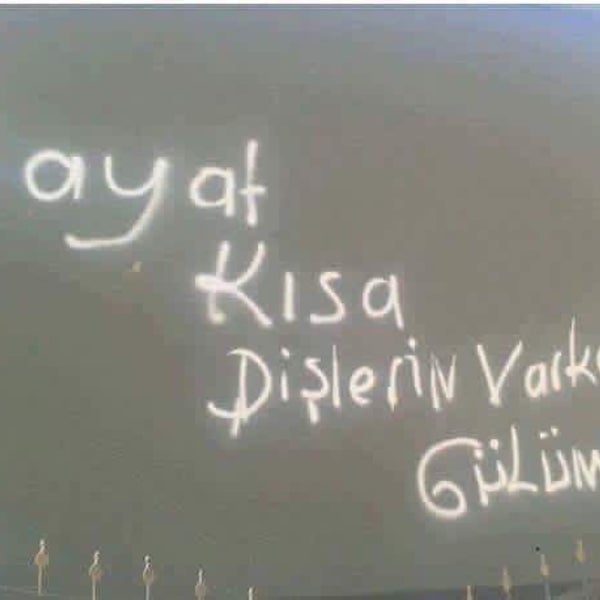 ayat
Kısa
Dişlerin Vark
Gülüm